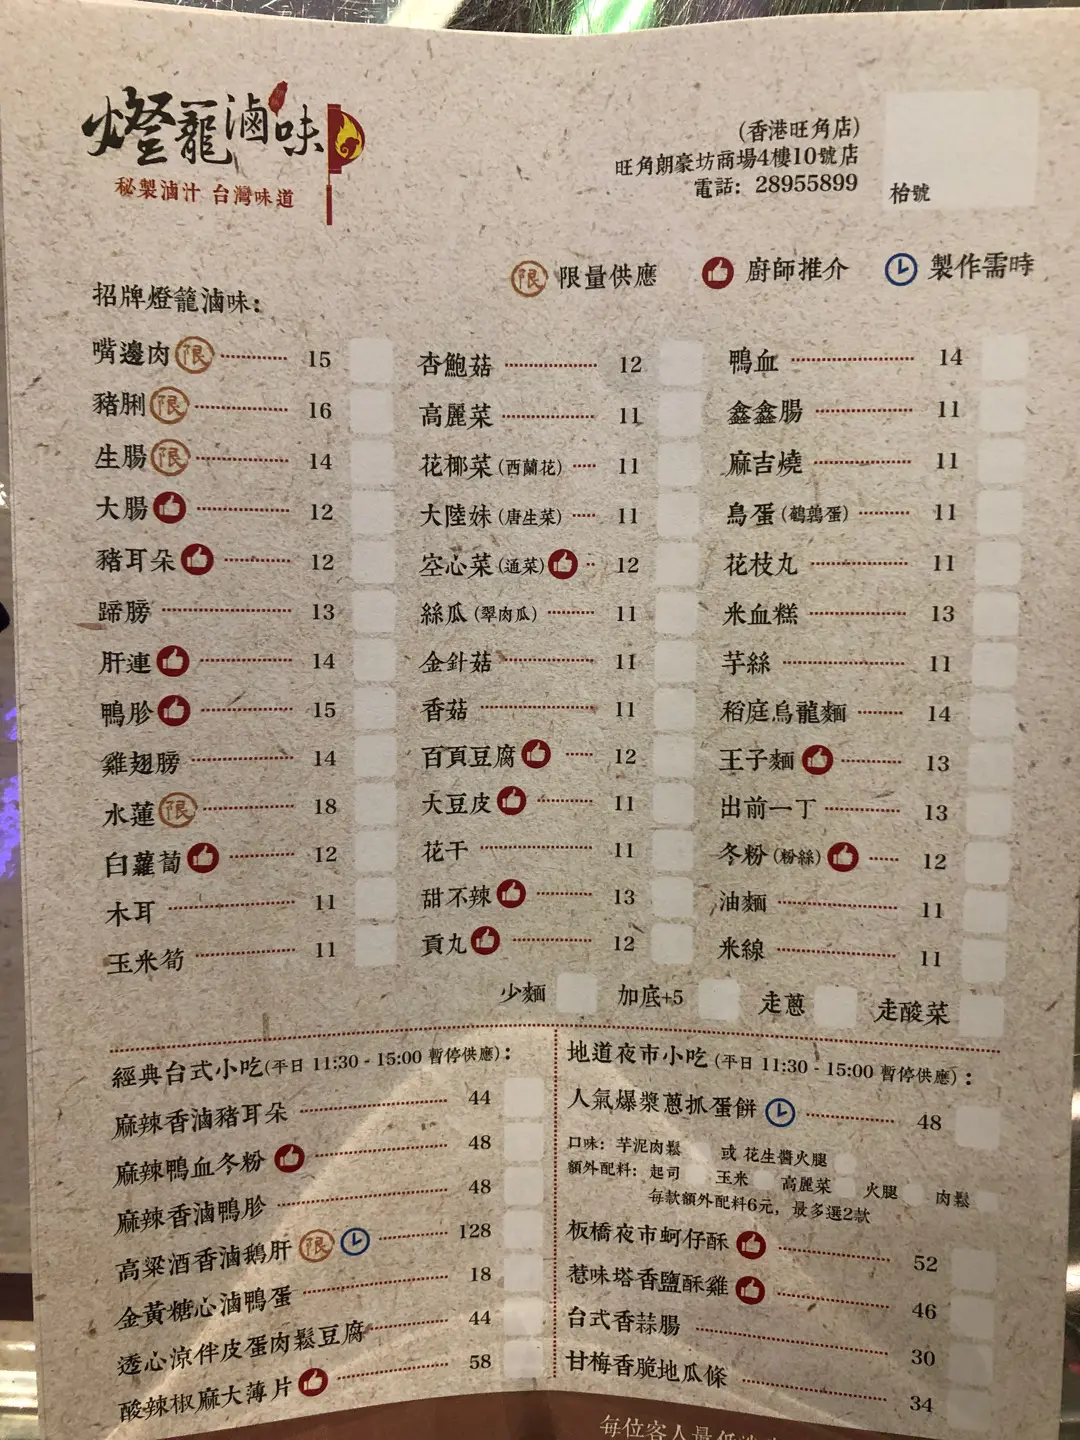 燈籠滷味
秘製滷汁 台灣味道
(香港旺角店)
旺角朗豪坊商場4樓10號店
電話: 28955899
枱號
限 限量供應 廚師推介 製作需時
招牌燈籠滷味:
嘴邊肉 限 15
豬脷 限 16
生腸 限 14
大腸 12
豬耳朵 12
蹄膀 13
肝連 14
鴨胗 15
雞翅膀 14
水蓮 限 18
白蘿蔔 12
木耳 11
玉米筍 11
杏鮑菇 12
高麗菜 11
花椰菜(西蘭花) 11
大陸妹(唐生菜) 11
空心菜(通菜) 12
絲瓜(翠肉瓜) 11
金針菇 11
香菇 11
百頁豆腐 12
大豆皮 11
花干 11
甜不辣 13
貢丸 12
鴨血 14
鑫鑫腸 11
麻吉燒 11
鳥蛋(鵪鶉蛋) 11
花枝丸 11
米血糕 13
芋絲 11
稻庭烏龍麵 14
王子麵 13
出前一丁 13
冬粉(粉絲) 12
油麵 11
米線 11
少麵 加底+5 走蔥 走酸菜
經典台式小吃(平日 11:30 - 15:00 暫停供應):
麻辣香滷豬耳朵 44
麻辣鴨血冬粉 48
麻辣香滷鴨胗 48
高粱酒香滷鵝肝 限 128
金黃糖心滷鴨蛋 18
透心涼伴皮蛋肉鬆豆腐 44
酸辣椒麻大薄片 58
地道夜市小吃(平日 11:30 - 15:00 暫停供應):
人氣爆漿蔥抓蛋餅 48
口味: 芋泥肉鬆 或 花生醬火腿
額外配料: 起司 玉米 高麗菜 火腿 肉鬆
每款額外配料6元, 最多選2款
板橋夜市蚵仔酥 52
惹味塔香鹽酥雞 46
台式香蒜腸 30
甘梅香脆地瓜條 34
每位客人最低